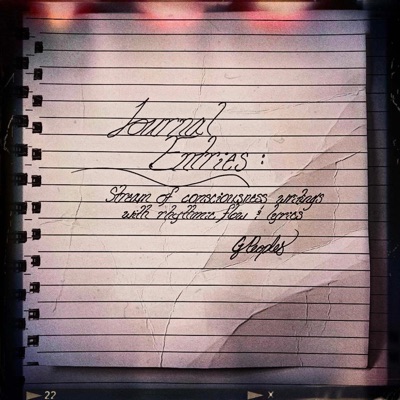 Journal
Entries :
Stream of consciousness writings
with rhythmic flow & lyrics
G Peoples
▷ 22